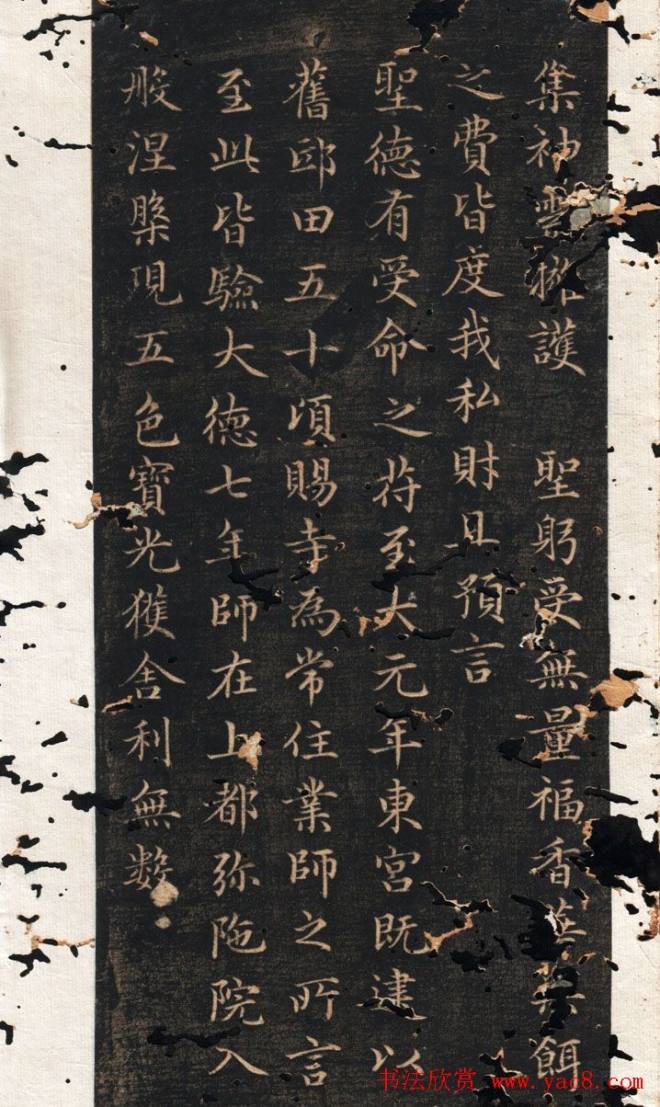 集神雲擁護 聖躬受無量福香華果餌
之費皆度我私財且預言
聖德有受命之符至大元年東宮既建以
舊邸田五十頃賜寺為常住業師之所言
至此皆驗大德七年師在上都弥陁院入
般涅槃現五色寶光獲舍利無數
书法欣赏 www.yac8.com